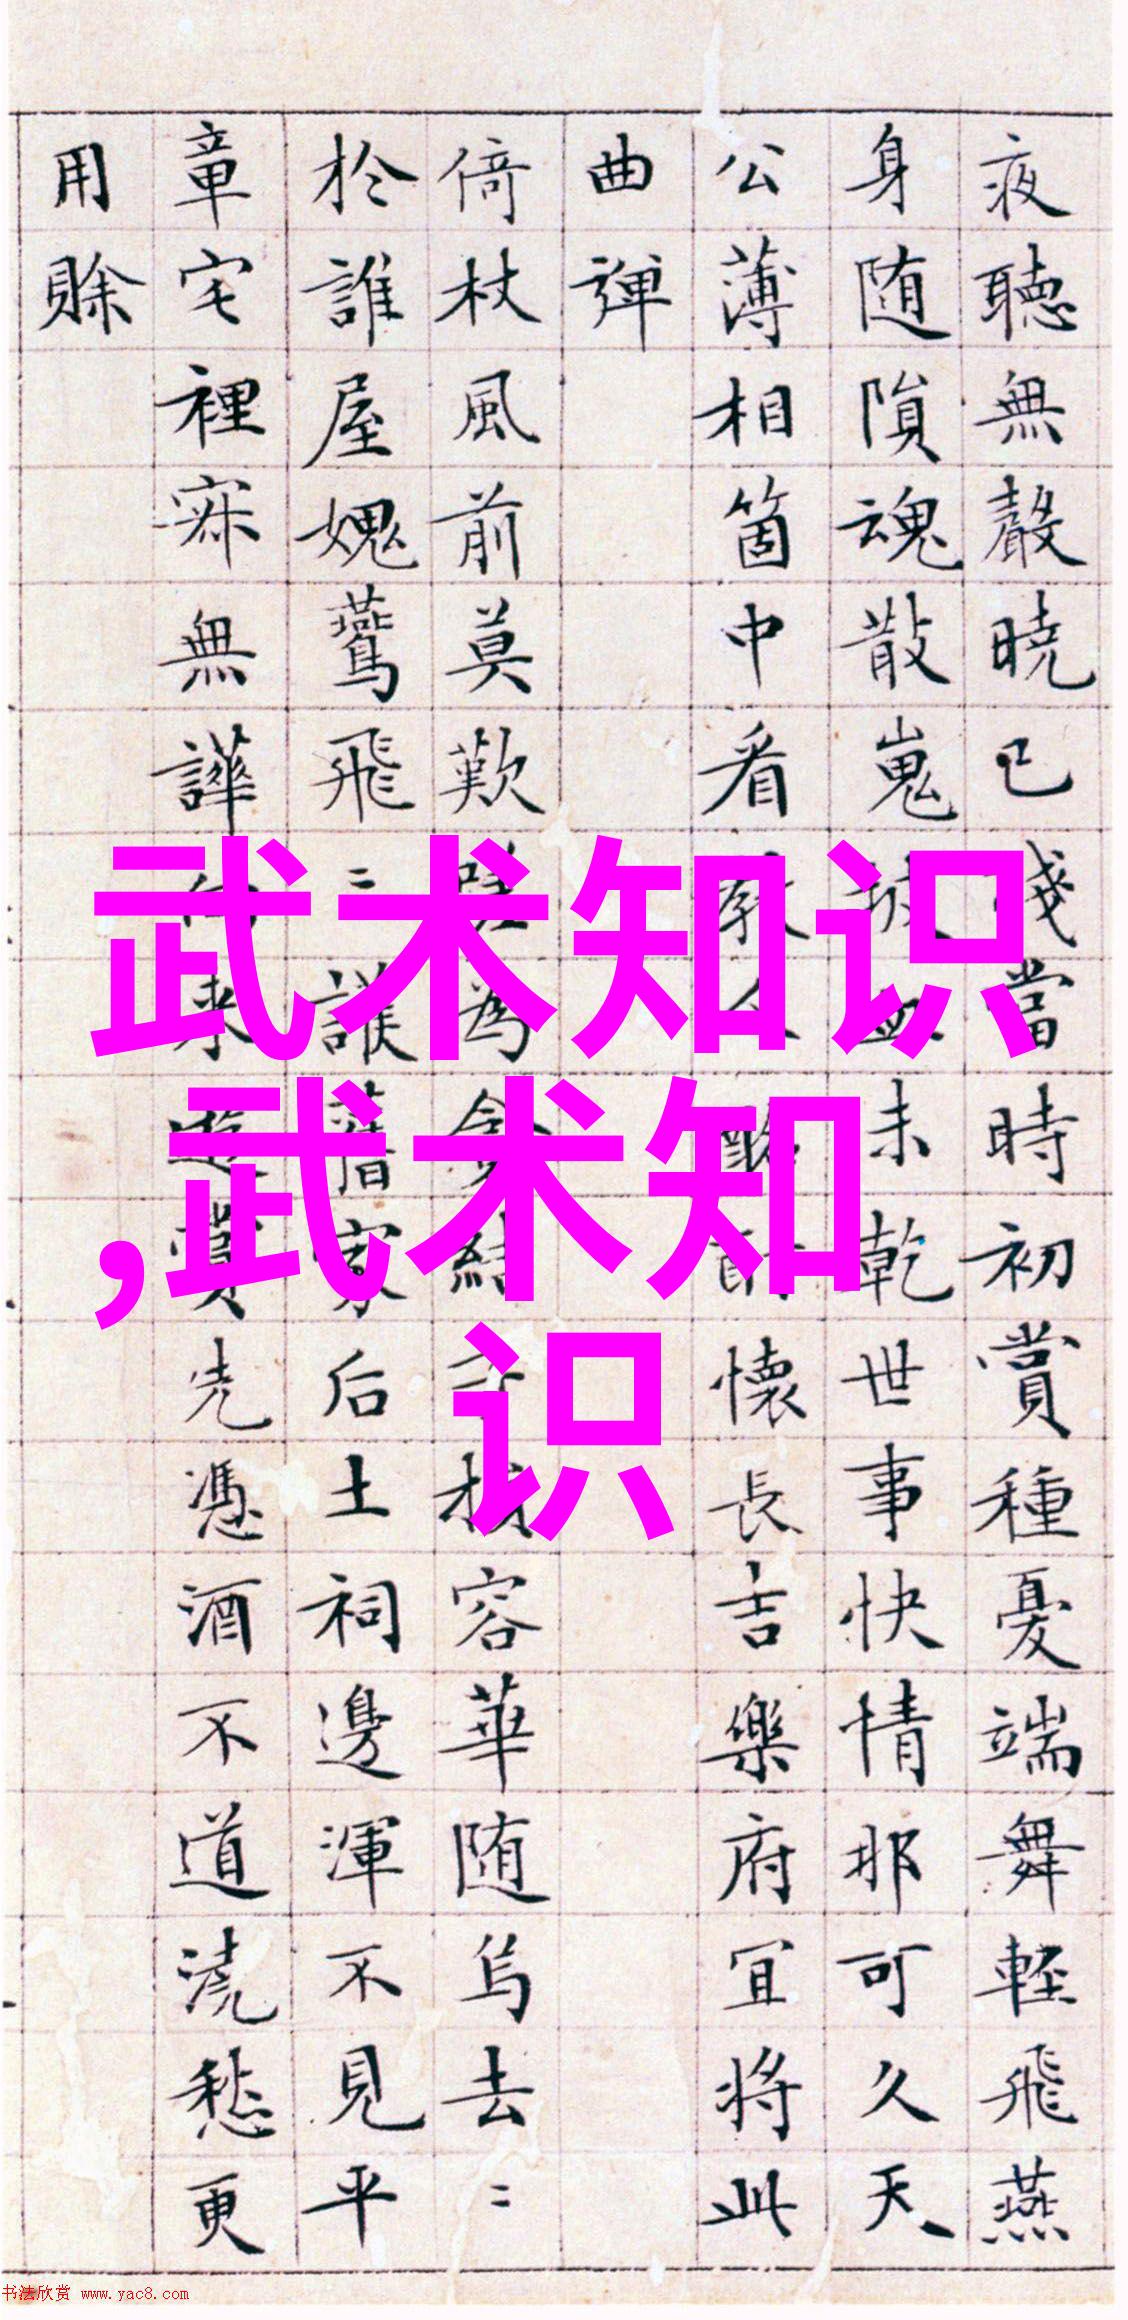 夜聽無聲曉已當時初賞種憂端舞輕飛燕
身随隕魂散嵬血未乾世事快情那可久天
公薄相箇中看教人酩酊懷長吉樂府冝將此
曲彈
倚杖風前莫歎嗟為貪結子損容華随烏去〻
於誰屋媿鷰飛〻誤舊家后土祠邊渾不見平
章宅裡寂無譁向來遊賞先憑酒不道澆愁更
用賒
武术知识
,武术知
识
书法欣赏 www.yac8.com